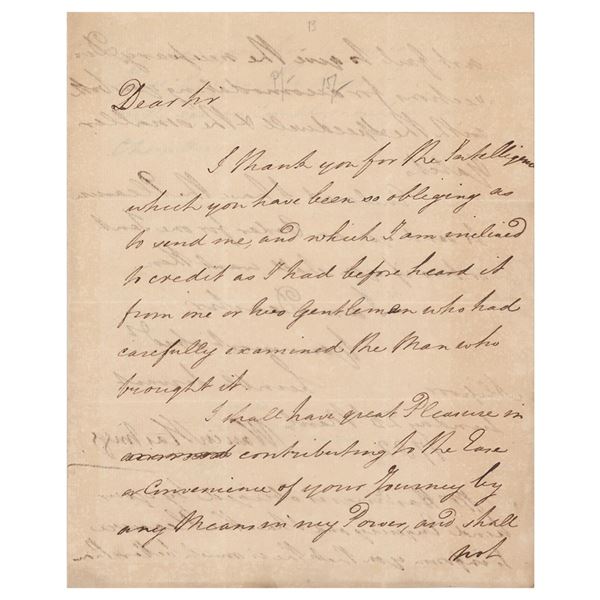 Dear Sir
I thank you for the Intelligence
which you have been so obliging as
to send me, and which I am inclined
to credit as I had before heard it
from one or two Gentlemen who had
carefully examined the Man who
brought it.
I shall have great Pleasure in
contributing to the Ease
or Convenience of your Journey by
any Means in my Power, and shall
not